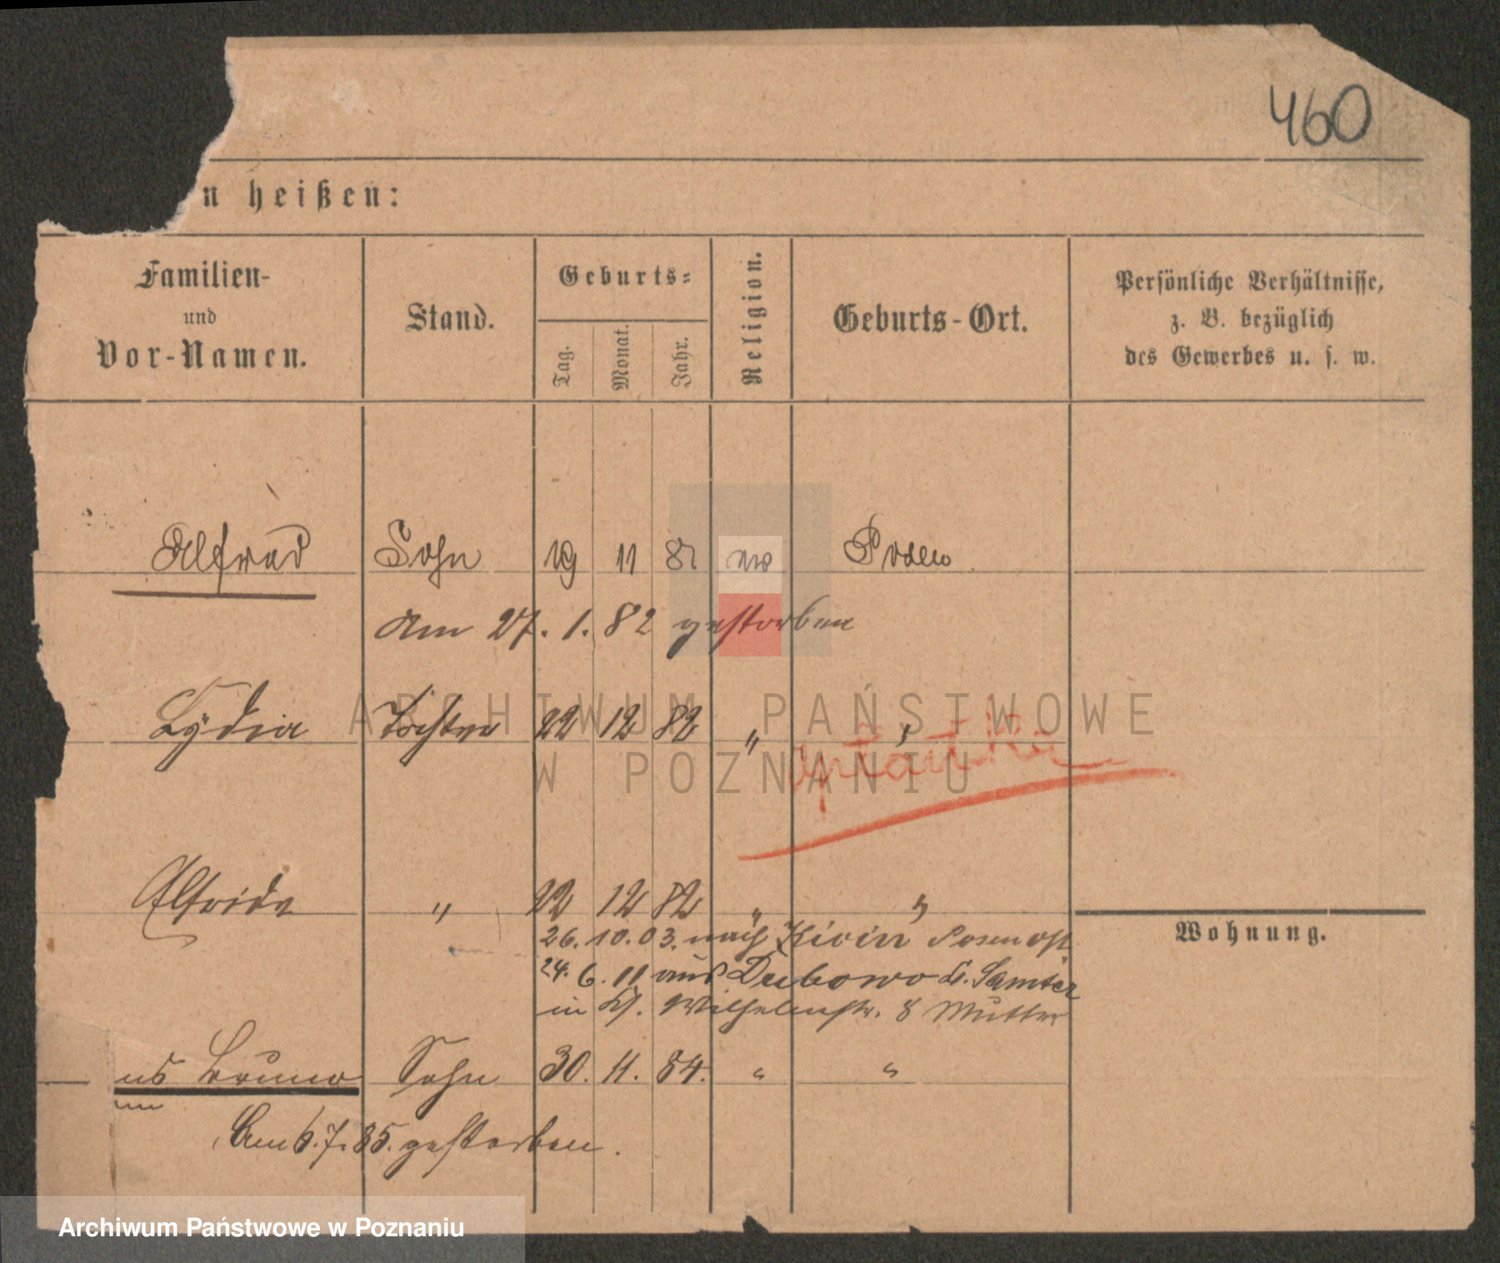 460
n heißen:
Familien- und Vor-Namen.
Stand.
Geburts-
Tag.
Monat.
Jahr.
Religion.
Geburts-Ort.
Persönliche Verhältnisse,
z. B. bezüglich
des Gewerbes u. s. w.
Alfred Sohn 19 11 81 ev Posen
Am 27. 1. 82 gestorben
Lydia Tochter 22 12 82 " "
ARCHIWUM PAŃSTWOWE
W POZNANIU
Elfride " 22 12 82 " "
26. 10. 03. nach Posen Ost
24. 6. 11 aus Dubowo Kr. Samter
in Kl. Wilhelmstr. 8 Mutter
Wohnung.
us Bruno Sohn 30. 11. 84. " "
Am 6. 7. 85. gestorben.
Archiwum Państwowe w Poznaniu